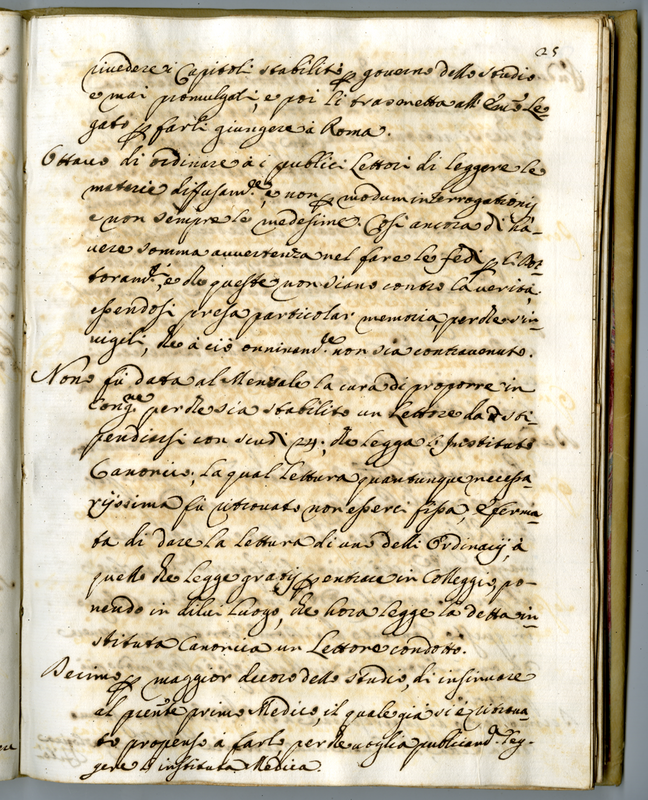 25
rivedere i Capitoli stabiliti p governo dello studio
e mai promulgati, e poi li trasmetta all' Emo Le-
gato p farli giungere à Roma.
Ottavo di ordinare à i publici Lettori di leggere le
materie diffusamte, e non p modum interrogationis
e non sempre le medesime. Così ancora di ha-
vere somma avvertenza nel fare le fedi p li Dot-
torandi, e che queste non siano contro la verità,
essendosi presa particolar memoria, perche s'in-
vigili, che à ciò onninamte non sia contravenuto.
Nono fù data al Mensale la cura di proporre in
Congne perche sia stabilito un Lettore da sti-
pendiarsi con scudi 24, che legga l'Instituta
Canonica, la qual lettura quantunque necessa-
rijssima fù ritrovato non esserci fissa, e ferma-
ta di dare la lettura di uno delli Ordinarij, à
quello che legge gratis p entrare in Colleggio, po-
nendo in di lui luogo, che hora legge la detta in-
stituta Canonica un Lettore condotto.
Decimo p maggior decoro dello studio, di insinuare
al pnte primo Medico, il quale già si è ritrova-
to propenso à farlo perche voglia publicamd. leg-
gere l'instituta Medica.